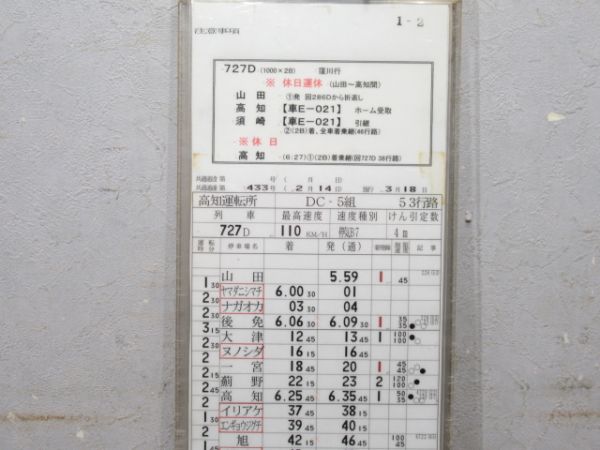 注意事項
1-2
727D (1000×2B) 窪川行
※ 休日運休 (山田～高知間)
山 田 ①発 回286Dから折返し
高 知 【車E-021】 ホーム受取
須 崎 【車E-021】 引継
②(2B)着、全車着乗継(46行路)
※ 休 日
高 知 (6:27)①(2B)着乗継(回727D 38行路)
共通過達第 号( 月 日)
共通過達第 433号( 2月14日) 施行 3月18日
高知運転所 DC-5組 53行路
列 車 最高速度 速度種別 けん引定数
727D 110 KM/H 停気B7 4m
運転時分 停車場名 着 発(通) 着発線 記 事
山 田 5.59 1 45
1 30 ヤマダニシマチ 6.00 30 01
2 30 ナガオカ 03 30 04
2 30 後 免 6.06 30 6.09 30 1 35 35
3 15 大 津 12 45 13 45 1 100 100
2 30 ヌノシダ 16 15 16 45
2 一 宮 18 45 20 1 45 45
2 15 薊 野 22 15 23 2 120 100
2 45 高 知 6.25 45 6.35 45 1 50 35
1 30 イリアケ 37 45 38 15
1 30 エンギョウジグチ 39 45 40 15
2 旭 42 15 46 45 100 45